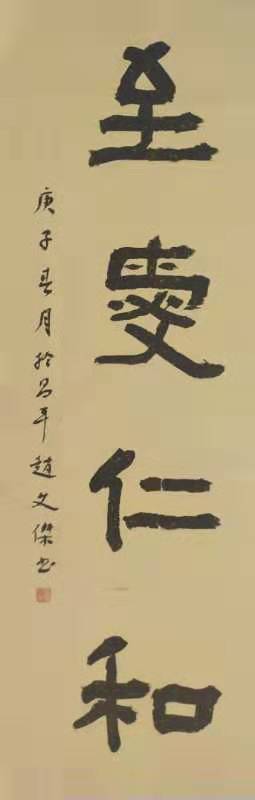 至愛仁和
庚子春月於昌平趙文傑书